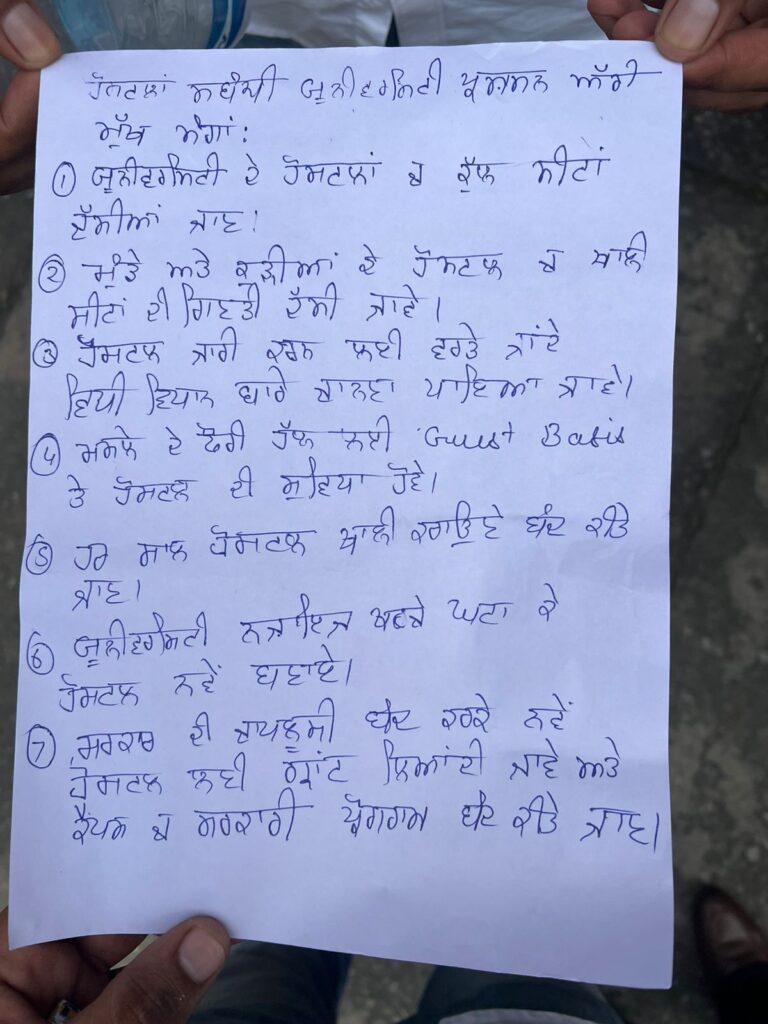 ਹੋਸਟਲਾਂ ਸਬੰਧੀ ਯੂਨੀਵਰਸਿਟੀ ਪ੍ਰਸ਼ਾਸਨ ਅੱਗੇ
ਮੁੱਖ ਮੰਗਾਂ:
① ਯੂਨੀਵਰਸਿਟੀ ਦੇ ਹੋਸਟਲਾਂ ਚ ਕੁੱਲ ਸੀਟਾਂ
ਦੱਸੀਆਂ ਜਾਣ।
② ਮੁੰਡੇ ਅਤੇ ਕੁੜੀਆਂ ਦੇ ਹੋਸਟਲ ਚ ਖਾਲੀ
ਸੀਟਾਂ ਦੀ ਗਿਣਤੀ ਦੱਸੀ ਜਾਵੇ।
③ ਹੋਸਟਲ ਜਾਰੀ ਕਰਨ ਲਈ ਵਰਤੇ ਜਾਂਦੇ
ਵਿਧੀ ਵਿਧਾਨ ਬਾਰੇ ਚਾਨਣਾ ਪਾਇਆ ਜਾਵੇ।
④ ਮਸਲੇ ਦੇ ਫੌਰੀ ਹੱਲ ਲਈ Guest Basis
ਤੇ ਹੋਸਟਲ ਦੀ ਸੁਵਿਧਾ ਹੋਵੇ।
⑤ ਹਰ ਸਾਲ ਹੋਸਟਲ ਖਾਲੀ ਕਰਾਉਣੇ ਬੰਦ ਕੀਤੇ
ਜਾਣ।
⑥ ਯੂਨੀਵਰਸਿਟੀ ਨਜਾਇਜ਼ ਖਰਚੇ ਘਟਾ ਕੇ
ਹੋਸਟਲ ਨਵੇਂ ਬਣਾਵੇ।
⑦ ਸਰਕਾਰ ਦੀ ਚਾਪਲੂਸੀ ਬੰਦ ਕਰਕੇ ਨਵੇਂ
ਹੋਸਟਲ ਲਈ ਗ੍ਰਾਂਟ ਲਿਆਂਦੀ ਜਾਵੇ ਅਤੇ
ਕੈਂਪਸ ਚ ਸਰਕਾਰੀ ਪ੍ਰੋਗਰਾਮ ਬੰਦ ਕੀਤੇ ਜਾਣ।